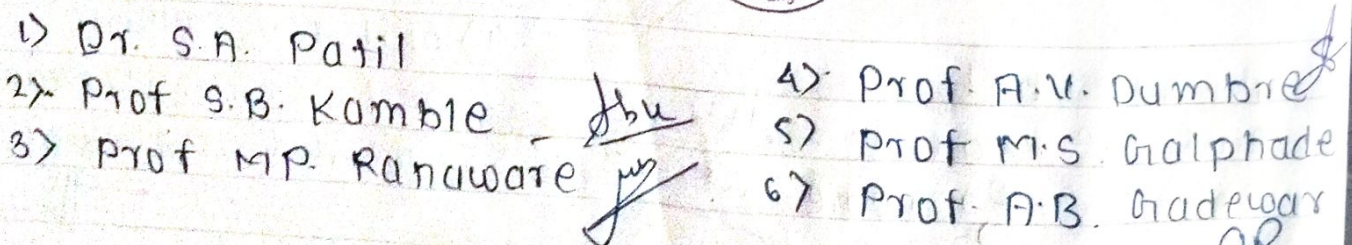 1) Dr. S.A. Patil
2) Prof S.B. Kamble
3) Prof M.P. Ranaware
4) Prof. A.V. Dumbre
5) Prof M.S. Galphade
6) Prof. A.B. Gadewar